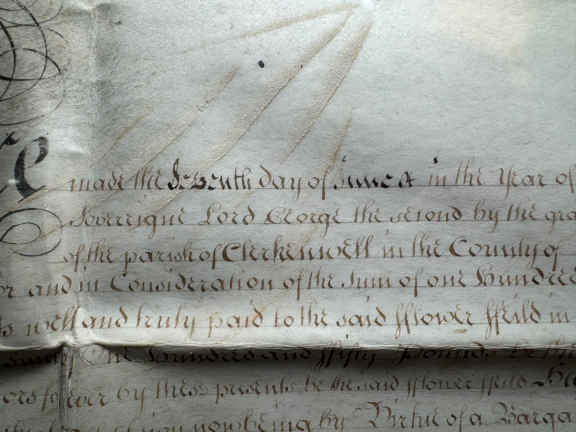 made the Seventh day of June in the Year of
Sovereigne Lord George the second by the gra
of the parish of Clerkenwell in the County of
or and in Consideration of the Sum of one Hundred
well and truly paid to the said fflower ffeild in
One Hundred and ffifty Pounds
ors for ever by these presents he the said fflower ffeild
now being by Virtue of a Barga